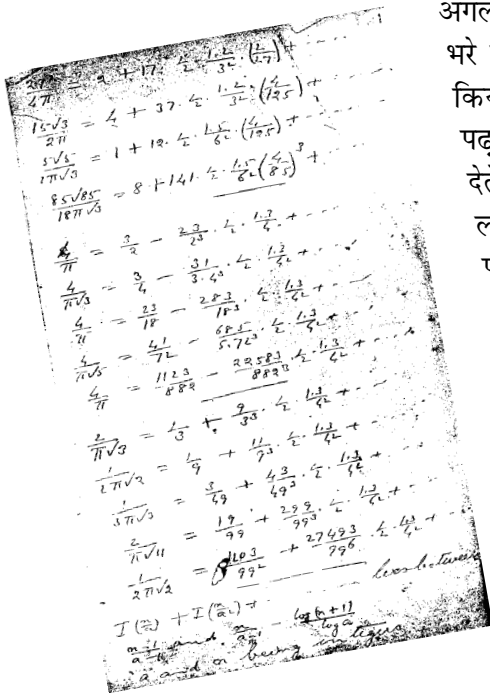 अगल
भरे
कि
पढ़
देते
ल
प
27/4π = 2 + 17 · 1/2 · 1.2/3² · (2/27) + ....
15√3/2π = 4 + 37 · 1/2 · 1.2/3² · (4/125) + ....
5√5/2π√3 = 1 + 12 · 1/2 · 1.5/6² · (4/125) + ....
85√85/18π√3 = 8 + 141 · 1/2 · 1.5/6² (4/85)³ + ....
4/π = 3/2 − 23/2³ · 1/2 · 1.3/4² + ....
4/π√3 = 3/4 − 31/3.4³ · 1/2 · 1.3/4² + ....
4/π = 23/18 − 283/18³ · 1/2 · 1.3/4² + ....
4/π√5 = 41/72 − 685/5.72³ · 1/2 · 1.3/4² + ....
4/π = 1123/882 − 22583/882³ · 1/2 · 1.3/4² + ....
2/π√3 = 1/3 + 9/3³ · 1/2 · 1.3/4² + ....
1/2π√2 = 1/9 + 11/9³ · 1/2 · 1.3/4² + ....
1/3π√3 = 3/49 + 43/49³ · 1/2 · 1.3/4² + ....
2/π√11 = 19/99 + 299/99³ · 1/2 · 1.3/4² + ....
1/2π√2 = 1103/99² + 27493/99⁶ · 1/2 · 1.3/4² + ....
I(n/a) + I(n/a²) +
lies between
and log(n+1)/log a
a and n being integers